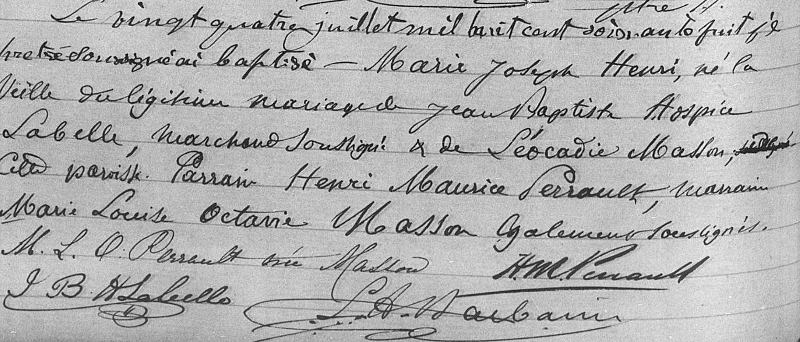 Le vingt quatre juillet mil huit cent soixante huit je
prêtre soussigné ai baptisé — Marie Joseph Henri, né la
veille du légitime mariage de Jean Baptiste Hospice
Labelle, marchand soussigné & de Léocadie Masson,
cette paroisse. Parrain Henri Maurice Perrault, marraine
Marie Louise Octavie Masson également soussignés.
M. L. O. Perrault née Masson H. M. Perrault
J B H Labelle L. A. Barbarin